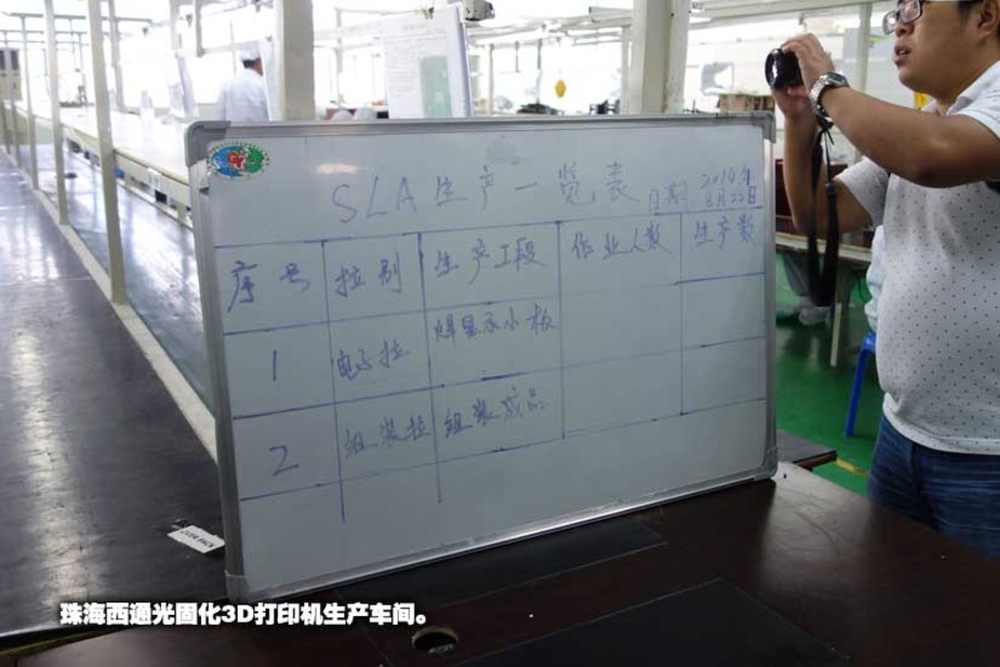 SLA生产一览表
日期 2014年
8月22日
序号 拉别 生产工段 作业人数 生产数
1 电子拉 焊显示小板
2 组装拉 组装成品
珠海西通光固化3D打印机生产车间。